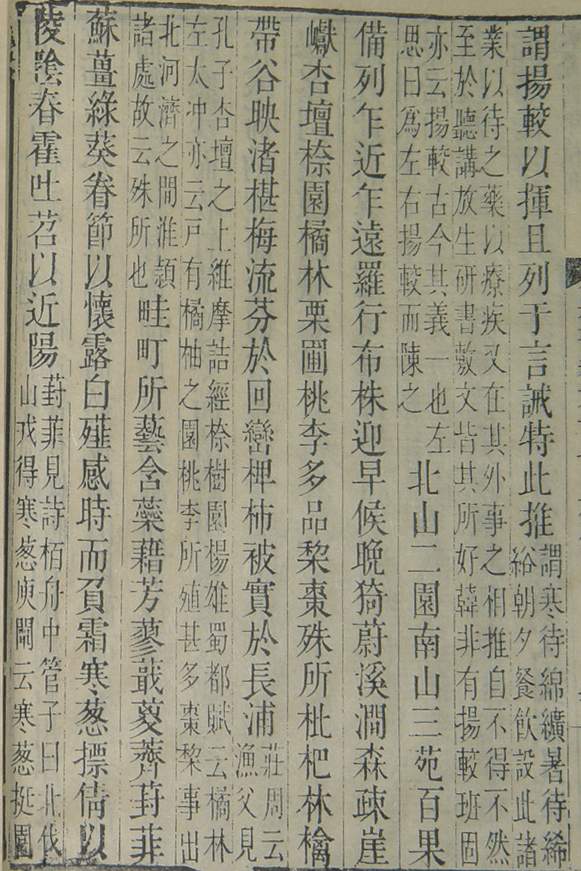 謂揚較以揮且列于言誡特此推
謂寒待綿纊暑待絺
綌朝夕餐飲設此諸
業以待之藥以療疾又在其外事之相推自不得不然
至於聽講放生研書敷文皆其所好韓非有揚較班固
亦云揚較古今其義一也左
思曰爲左右揚較而陳之
北山二園南山三苑百果
備列乍近乍遠羅行布株迎早候晚猗蔚溪澗森疎崖
巘杏壇㮈園橘林栗圃桃李多品棃棗殊所枇杷林檎
帶谷映渚椹梅流芬於回巒椑柿被實於長浦
莊周云
漁父見
孔子杏壇之上維摩詰經㮈樹園楊雄蜀都賦云橘林
左太冲亦云戸有橘柚之園桃李所殖甚多棗棃事出
北河濟之間淮潁
諸處故云殊所也
畦町所藝含蘂藉芳蓼蕺葼薺葑菲
蘇薑綠葵眷節以懷露白薤感時而負霜寒葱摽倩以
陵陰春藿吐苕以近陽
葑菲見詩栢舟中管子曰北伐
山戎得寒葱庾闡云寒葱挺園